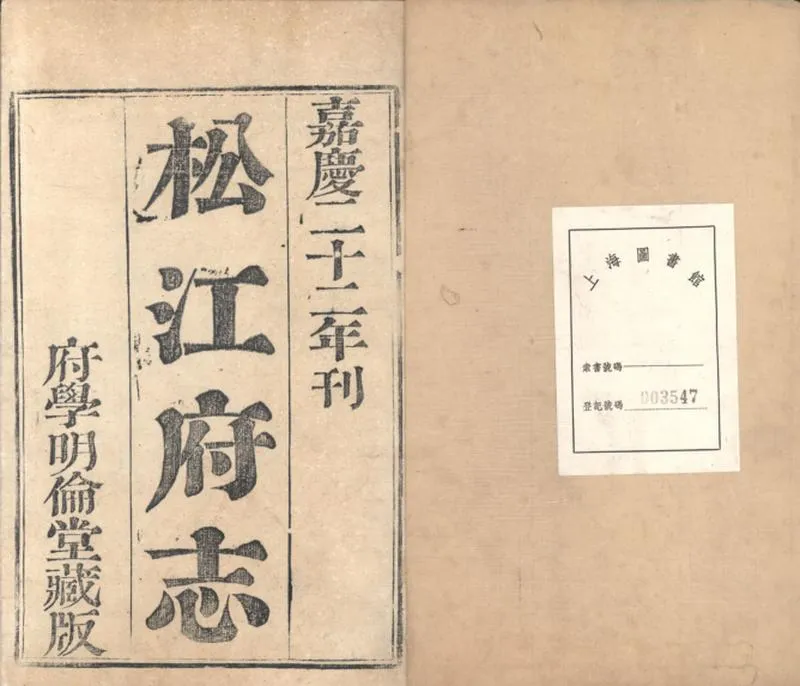 嘉慶二十二年刊
松江府志
府學明倫堂藏版
上海圖書館
索書號碼
登記號碼 003547